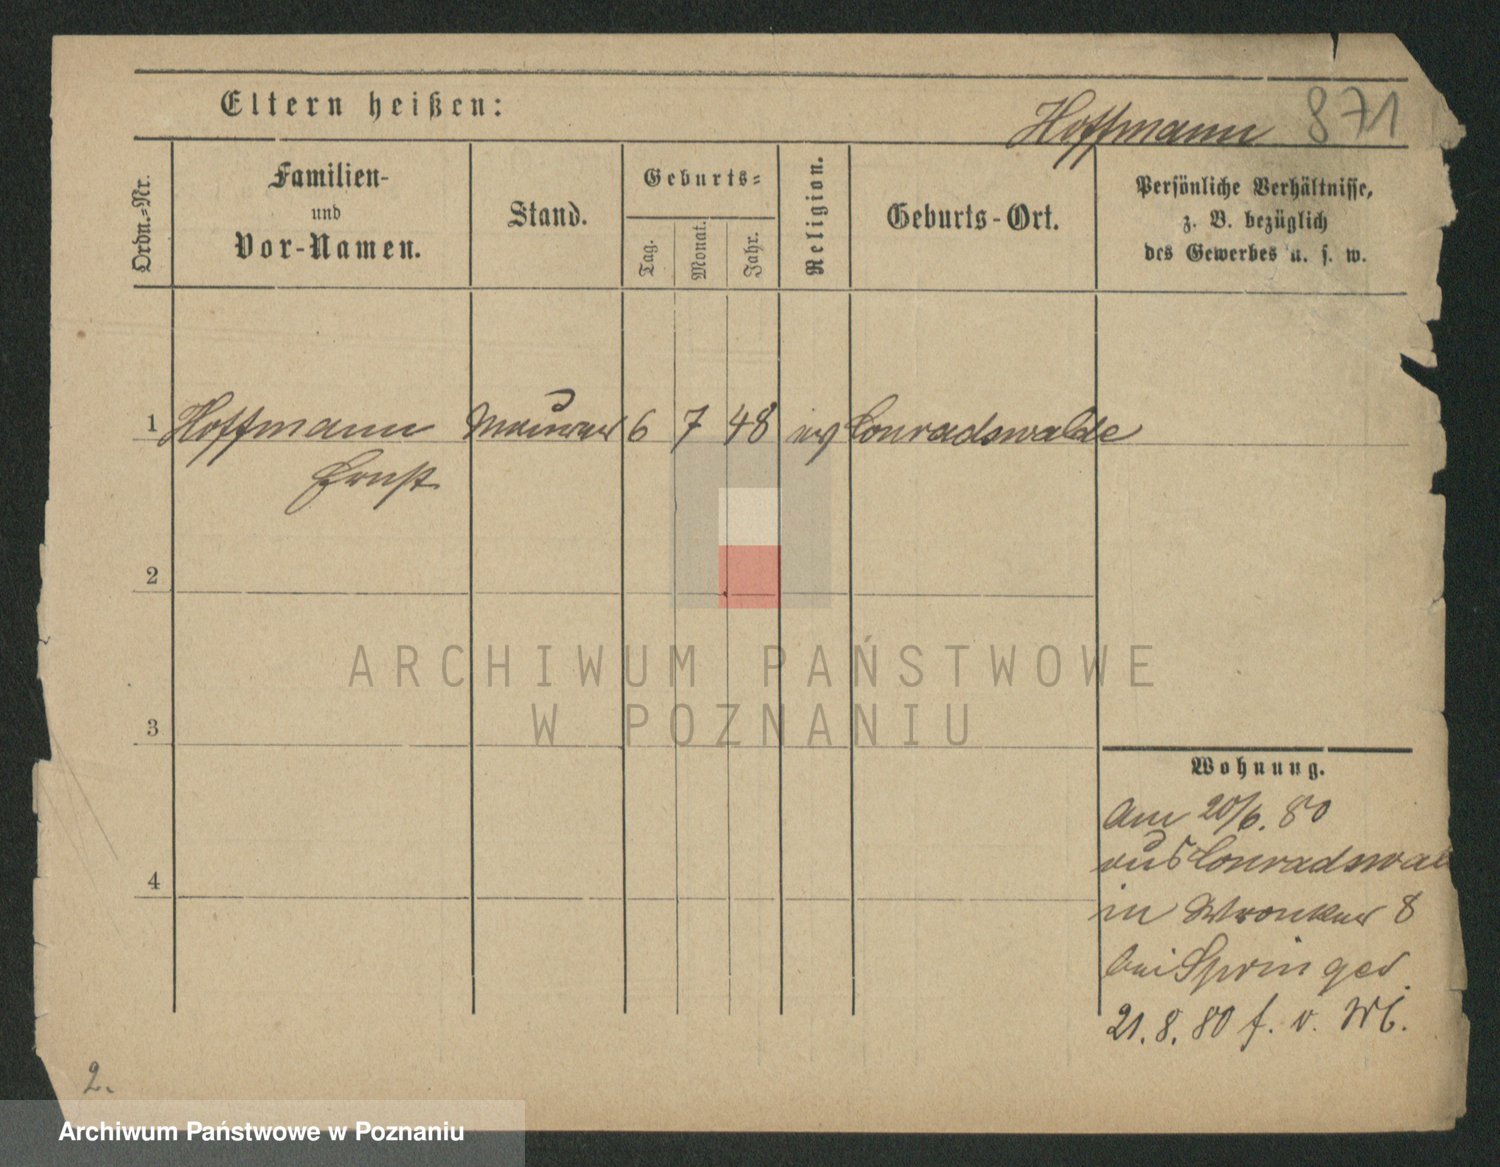 Eltern heißen:
Hoffmann 871
Ordn.=Nr.
Familien-
und
Vor-Namen.
Stand.
Geburts=
Tag.
Monat.
Jahr.
Religion.
Geburts-Ort.
Persönliche Verhältnisse,
z. B. bezüglich
des Gewerbes u. s. w.
1 Hoffmann Maurer 6 7 48 ev Conradswalde
Ernst
2
ARCHIWUM PAŃSTWOWE
W POZNANIU
3
Wohnung.
Am 20/6. 80
aus Conradswal
4
in Wronker 8
bei Springer.
21. 8. 80 f. v.
2.
Archiwum Państwowe w Poznaniu